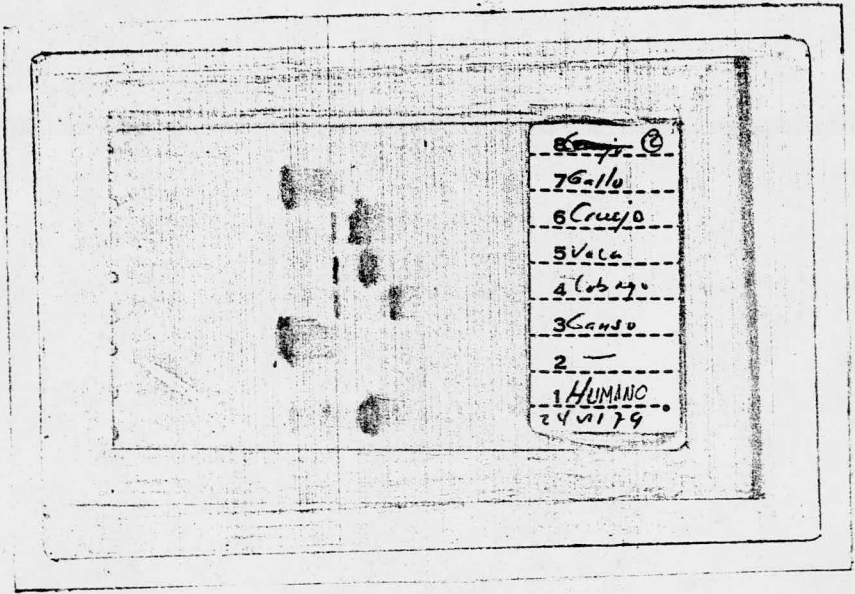 8 ②
7 Gallo
6 Cruejo
5 Vaca
4 Cobayo
3 Ganso
2 —
1 HUMANO
24 VI 79